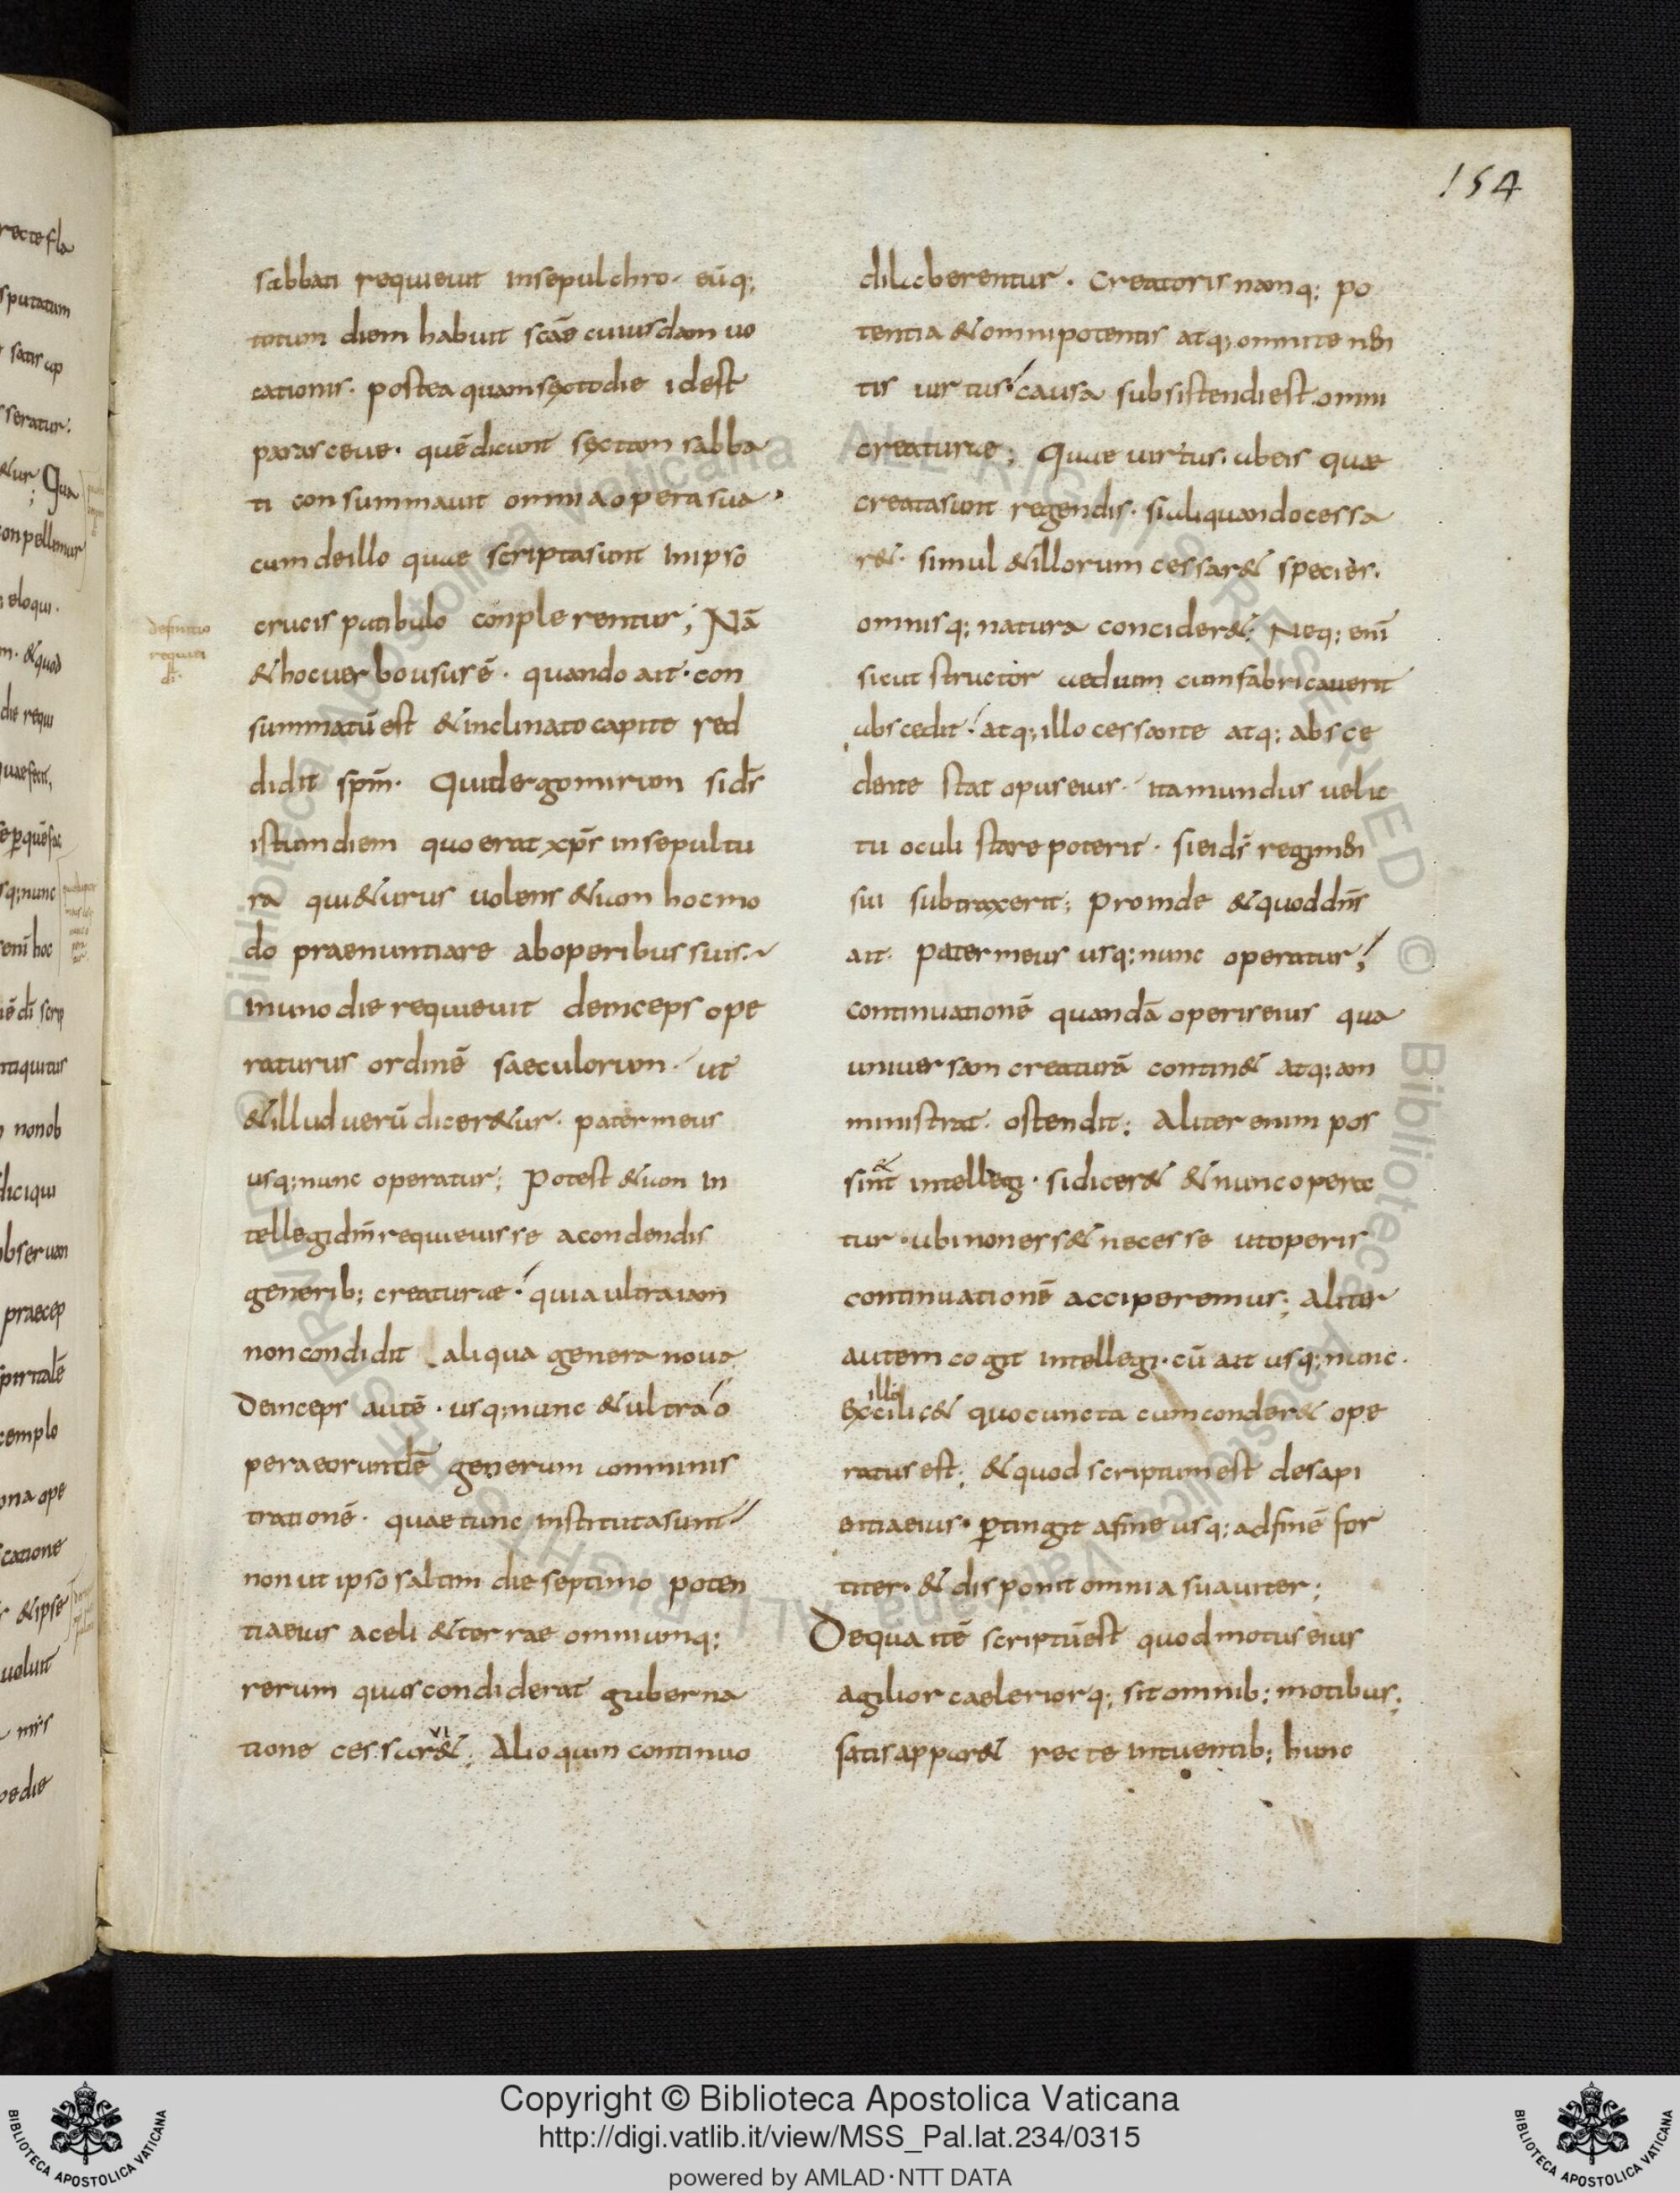 154
sabbati requieuit insepulchro. eūq;
totum diem habuit scāe cuiusdam uo
cationis. postea quam sexto die idest
parasceue. quē dicunt sextam sabba
ti consummauit omnia opera sua.
cum deillo quae scripta sunt inipso
crucis patibulo conplerentur; Nā
& hoc uerbo usus ē. quando ait. con
summatū est & inclinato capite red
didit spm̄. Quid ergo mirum si ds̄
istum diem quo erat xp̄s insepultu
ra qui&urus uolens &iam hoc mo
do praenuntiare aboperibus suis.
inuno die requieuit deinceps ope
raturus ordinē saeculorum. ut
& illud uerū dicer&ur. pater meus
usq; nunc operatur; Potest &iam in
tellegi dm̄ requieuisse acondendis
generib; creaturae. quia ultra iam
non condidit aliqua genera noua
Deinceps autē. usq; nunc & ultra o
pera eorundē generum amminis
trationē. quae tunc instituta sunt
non ut ipso saltim die septimo poten
tia eius a celi & terrae omniumq;
rerum quas condiderat guberna
tione cessar&; Alioquin continuo
VI
definitio
requiei
di
dilaberentur. Creatoris namq; po
tentia & omnipotentis atq; omnitenen
tis uirtus. causa subsistendi est omni
creaturae; Quae uirtus. abeis quae
creata sunt regendis. si aliquando cessa
r&. simul & illorum cessar& species.
omnisq; natura concider&; Neq; enī
sicut structor aedium cum fabricauerit
abscedit. atq; illo cessante atq; absce
dente stat opus eius. ita mundus uel ic
tu oculi stare poterit. si ei ds̄ regimen
sui subtraxerit; Proinde & quod dn̄s
ait. Pater meus usq; nunc operatur;
continuationē quandā operis eius qua
uniuersam creaturā contin& atq; am
ministrat. ostendit; Aliter enim pos
sint intellegi. si dicer& & nunc opera
tur. ubi non ess& necesse ut operis
continuationē acciperemus; Aliter
autem cogit intellegi. cū ait usq; nunc.
illo
quo cuncta cum conder& ope
ratus est; & quod scriptum est desapi
entia eius. ꝑtingit afine usq; adfinē for
titer. & disponit omnia suauiter;
Dequa itē scriptū est quod motus eius
agilior caeleriorq; sit omnib; motibus;
satis appar& recte intuentib; hunc
Copyright © Biblioteca Apostolica Vaticana
http://digi.vatlib.it/view/MSS_Pal.lat.234/0315
powered by AMLAD·NTT DATA
BIBLIOTECA APOSTOLICA VATICANA
BIBLIOTECA APOSTOLICA VATICANA